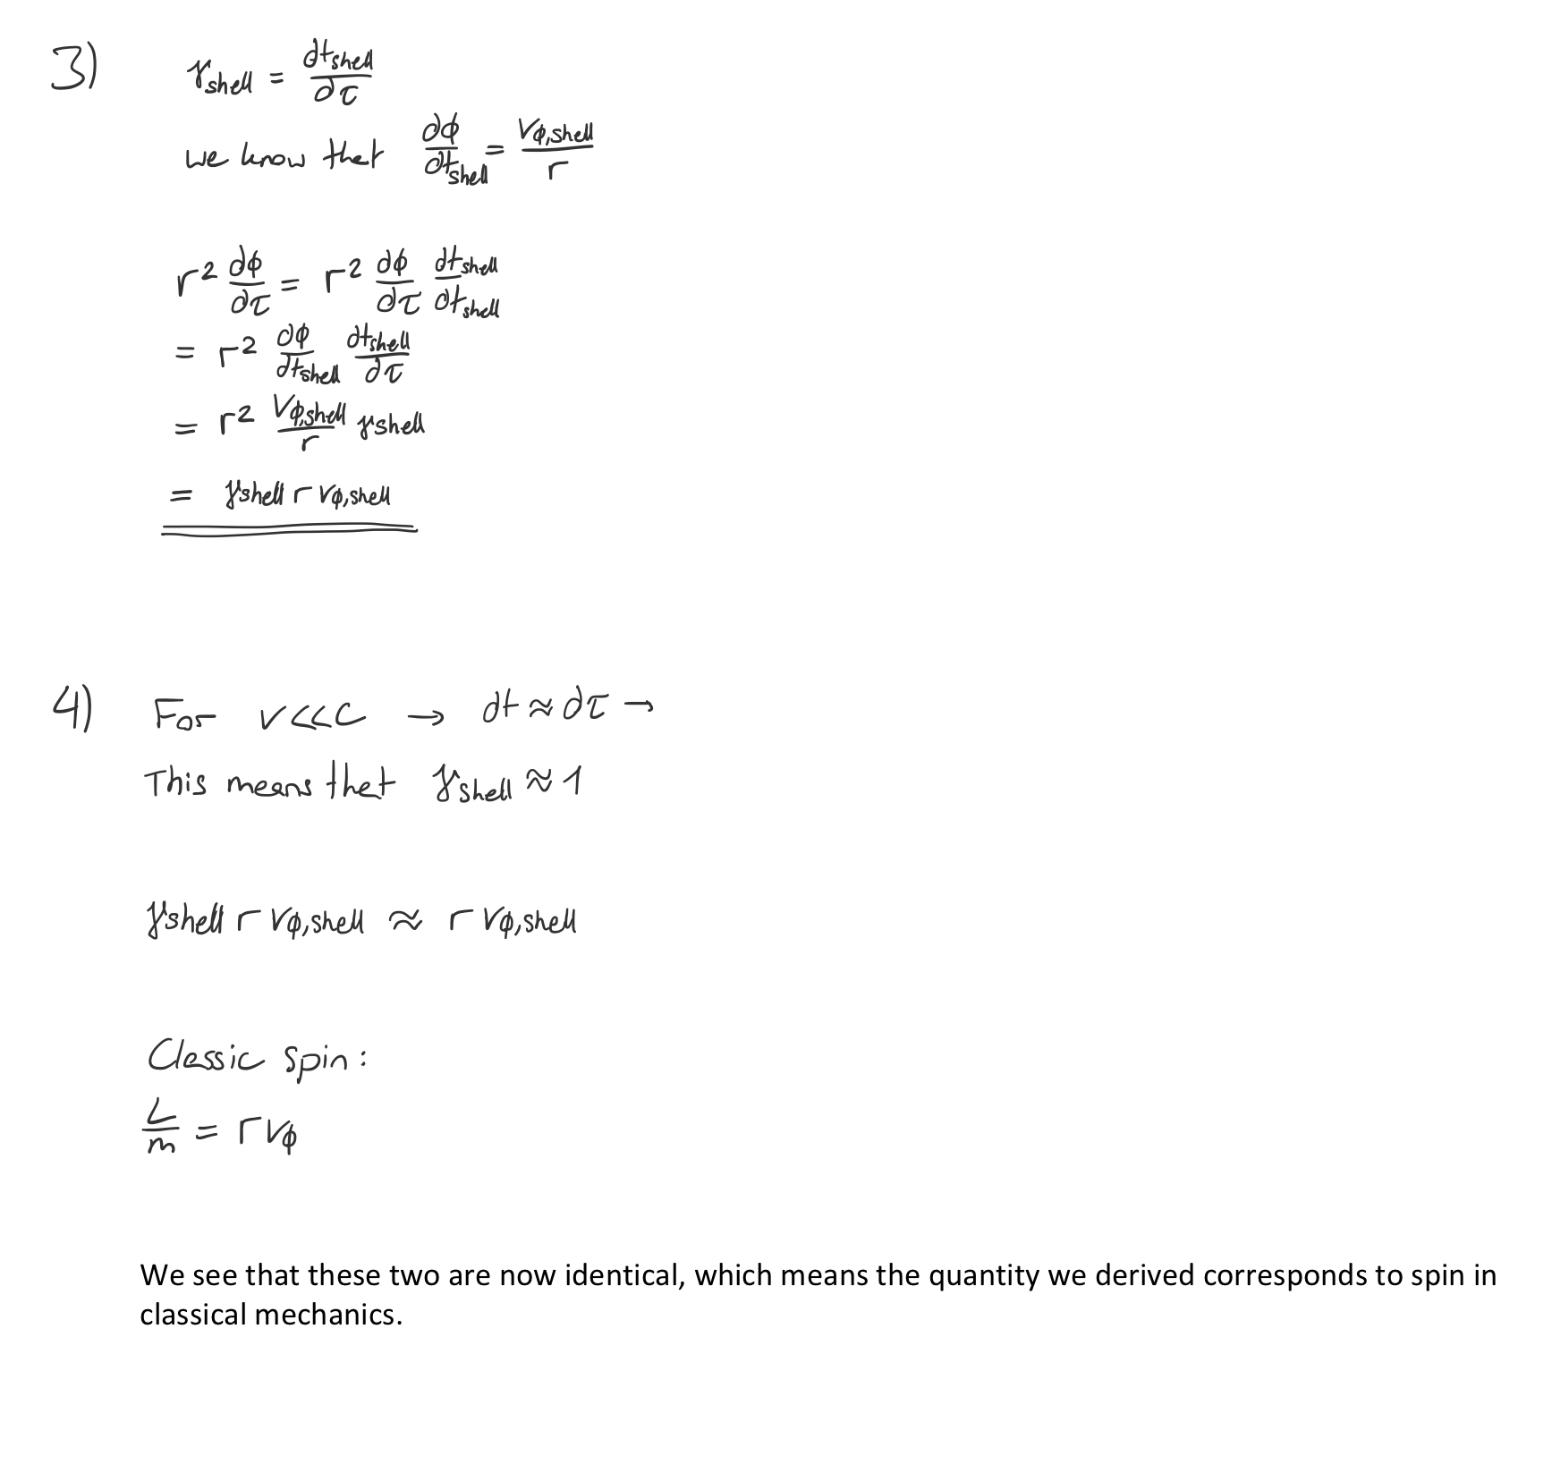 3) γshell = dtshell/dτ
we know that dϕ/dtshell = vϕ,shell/r
r² dϕ/dτ = r² dϕ/dτ dtshell/dtshell
= r² dϕ/dtshell dtshell/dτ
= r² vϕ,shell/r γshell
= γshell r vϕ,shell
4) For v<<c → dt ≈ dτ →
This means that γshell ≈ 1
γshell r vϕ,shell ≈ r vϕ,shell
Classic spin:
L/m = r vϕ
We see that these two are now identical, which means the quantity we derived corresponds to spin in
classical mechanics.